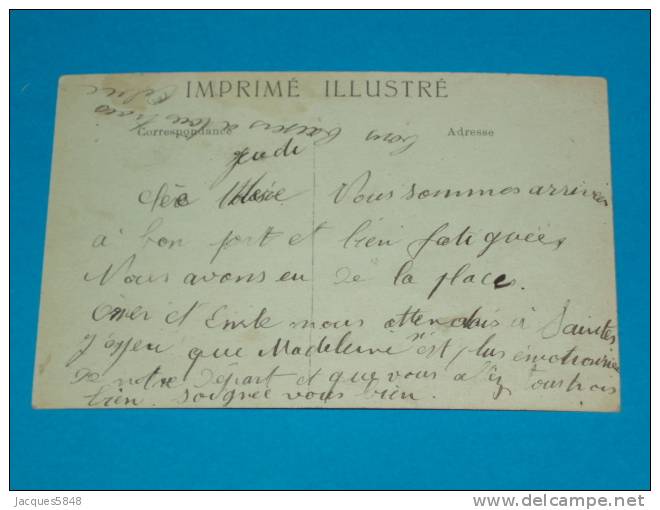 IMPRIMÉ ILLUSTRÉ
Correspondance
Adresse
bons baisers à tous trois
Jeudi
Vous sommes arrivées
à bon port et bien fatiguées
Nous avons eu de la place.
et Emile nous attendais à Saintes
j'espeu que Madeleine n'est plus émotionnée
de notre départ et que vous allez tous trois
bien. Soignée vous bien.
Jacques5848
delcampe.net